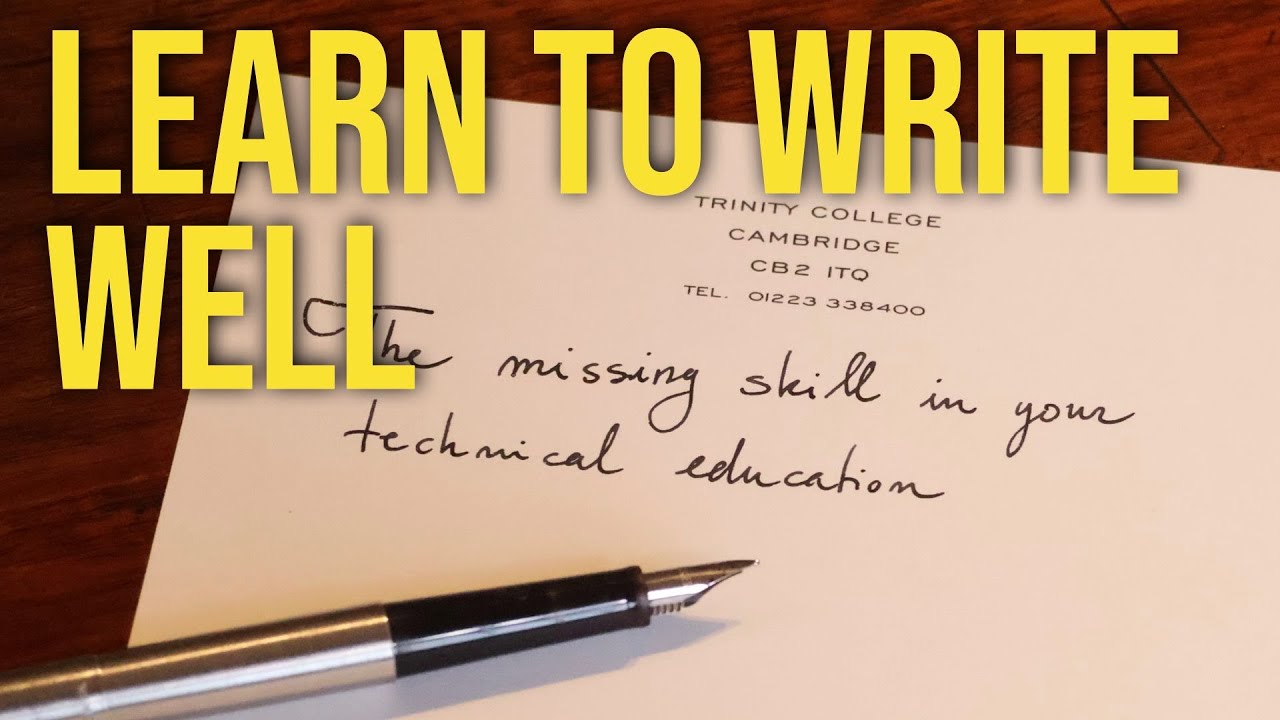 LEARN TO WRITE
WELL
TRINITY COLLEGE
CAMBRIDGE
CB2 1TQ
TEL. 01223 338400
The missing skill in your
technical education